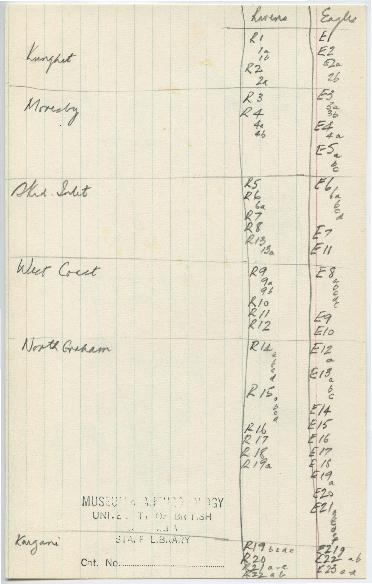 Ravens Eagles
Kunghit R1 E1
1a E2
1b
R2 E2a
2a 2b
Moresby R3 E3
R4 3a
4a 3b
4b E4
4a
E5a
b
c
Skid. Inlet R5 E6
R6 6a
6a b
R7 c
R8 d
R13 E7
13a E11
West Coast R9 E8
9a a
9b b
R10 c
R11 E9
R12 E10
North Graham R14 E12
a a
E13a
b
R15 c
a
b E14
c
d E15
R16 E16
R17 E17
R18 E18
R19a E19
a
E20
E21
MUSEUM
UNIVERSITY OF BRITISH
STAFF LIBRARY
Kaigani R19 E21g
R20 E22
R21 E23
R22 ab
Cat. No.